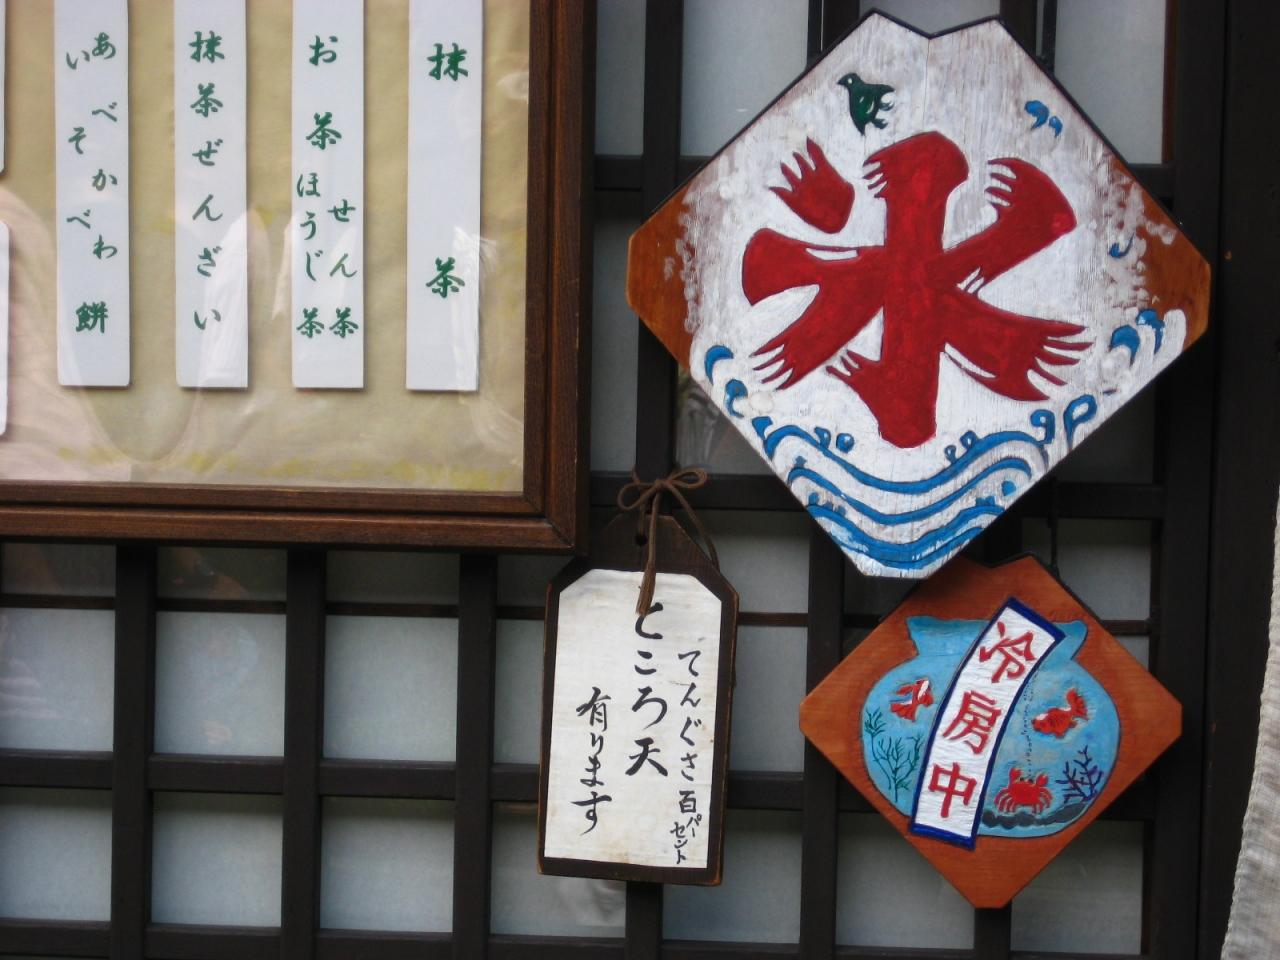 抹茶
お茶
せん茶
ほうじ茶
抹茶ぜんざい
あべかわ
いそべ
餅
氷
てんぐさ百パーセント
ところ天
有ります
冷房中